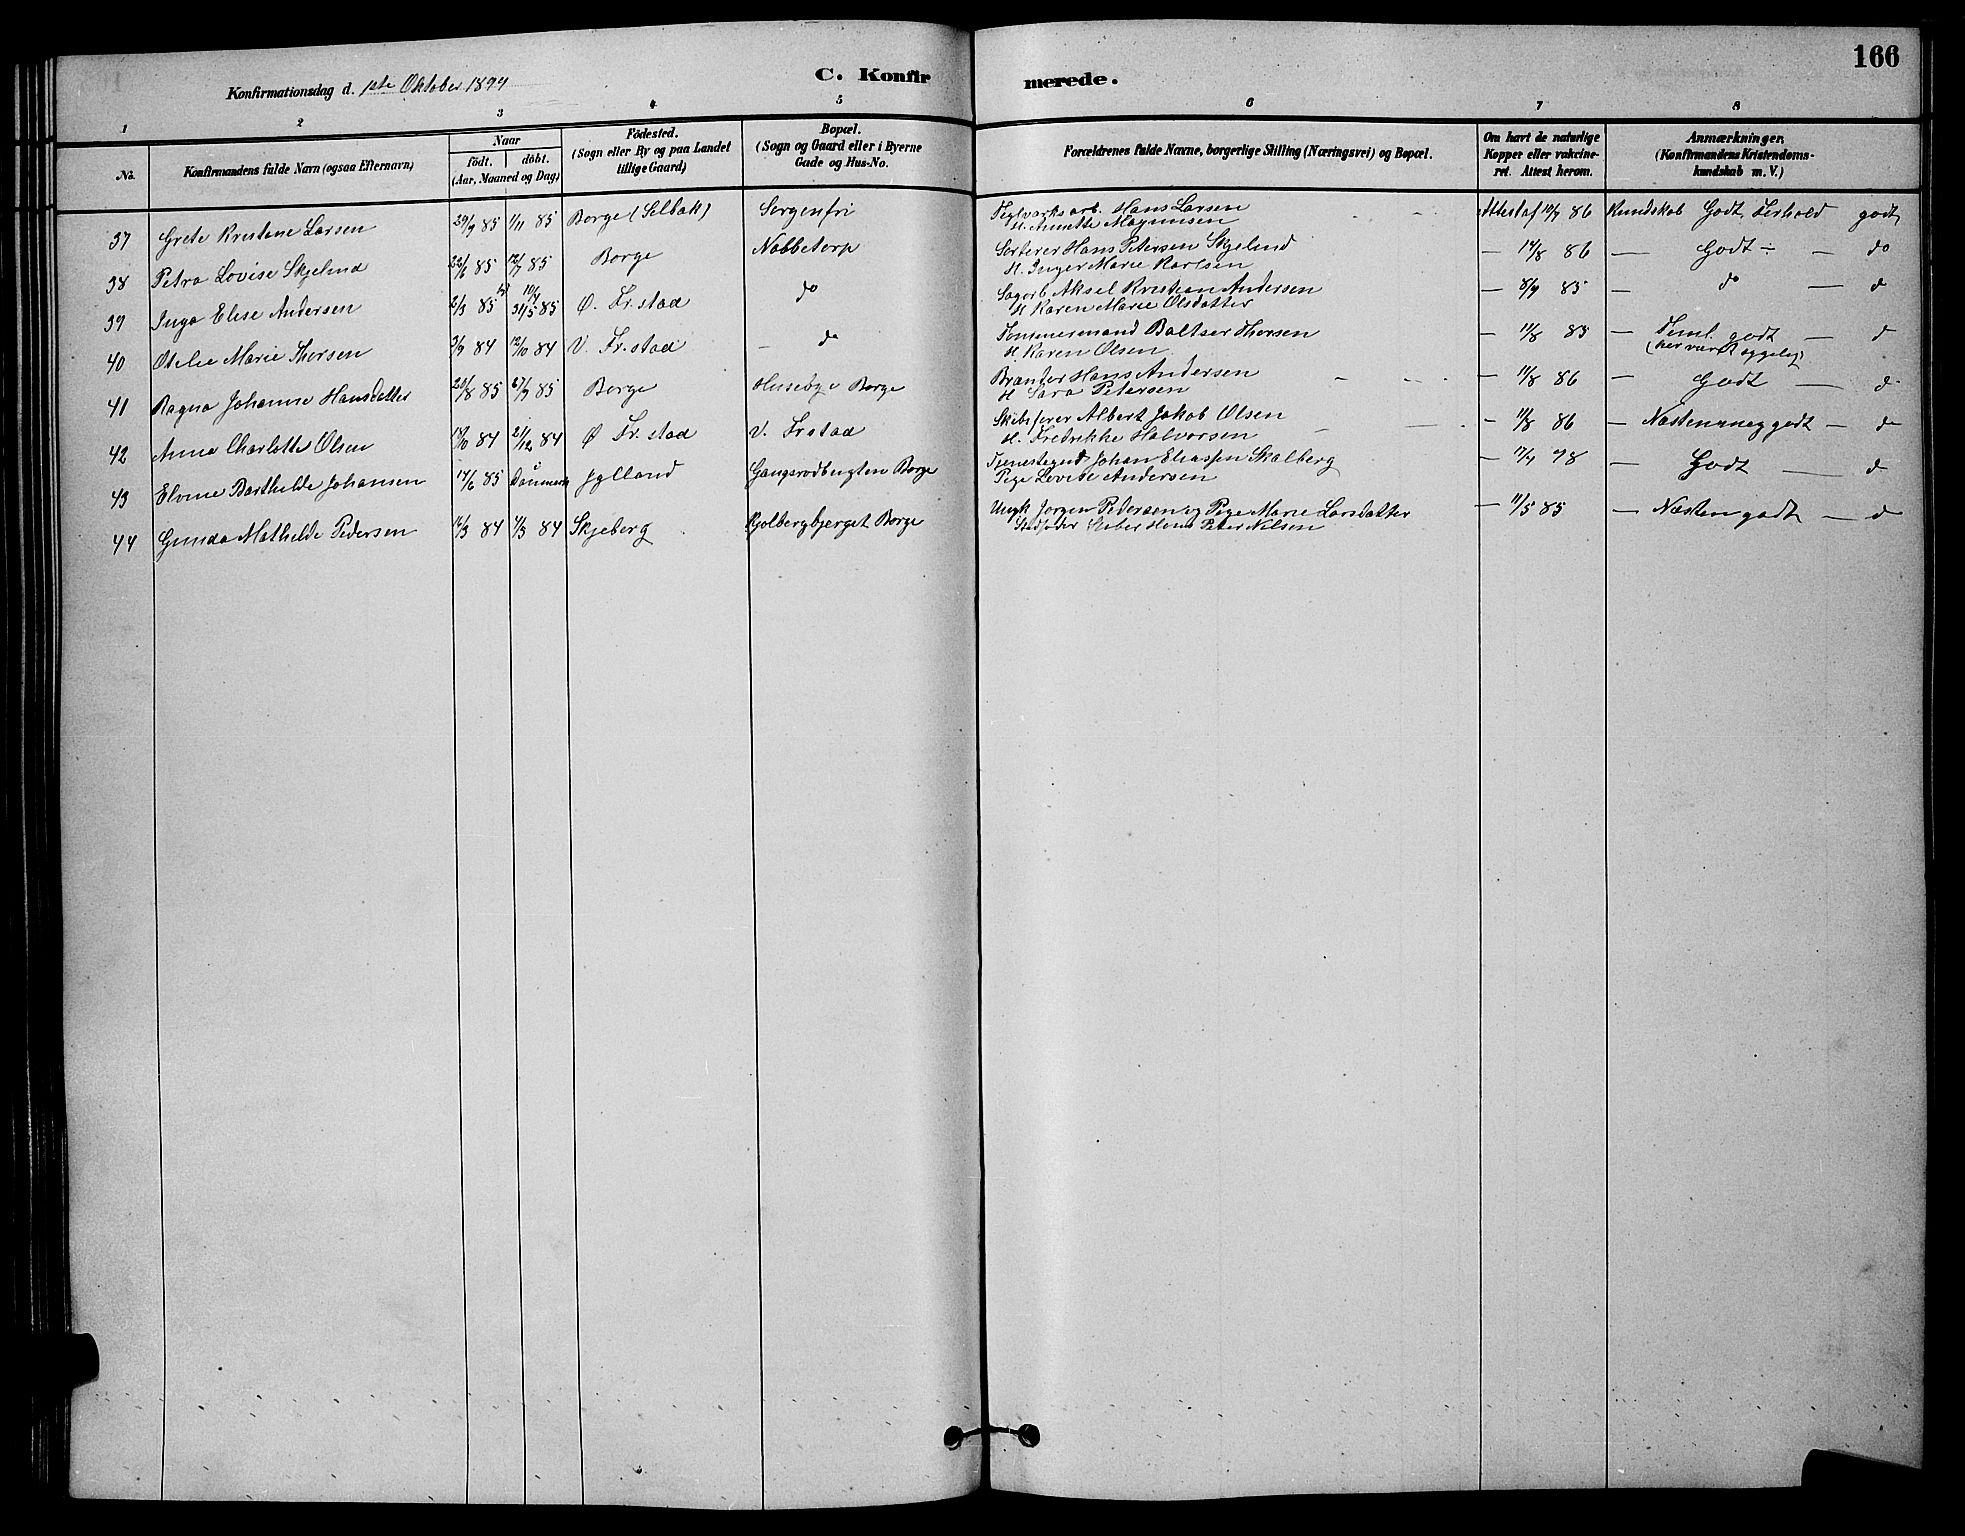 166
Konfirmationsdag d. 1ste Oktober 1899
C. Konfirmerede.
1 2 3 4 5 6 7 8
No. Konfirmandens fulde Navn (ogsaa Efternavn) Naar födt. döbt. (Aar, Maaned og Dag) Födested. (Sogn eller By og paa Landet tillige Gaard) Bopæl. (Sogn og Gaard eller i Byerne Gade og Hus-No. Forældrenes fulde Navne, borgerlige Stilling (Næringsvei) og Bopæl. Om havt de naturlige Kopper eller vakcineret. Attest herom. Anmærkninger. (Konfirmandens Kristendomskundskab m. V.)
37 Grete Kristene Larsen 29/9 85 1/11 85 Borge (Selbak) Sorgenfri Teglværksarb. Hans Larsen Attest af 10/9 86 Kundskab Godt Forhold godt
H. Annette Magnusen
38 Petra Lovise Skjelind 22/6 85 12/7 85 Borge Nabbetorp Sorterer Hans Petersen Skjelind — 14/8 86 — Godt ÷ — do
H. Inger Marie Karlsen
39 Inga Elise Andersen 2/3 85 31/5 85 Ø. Fr.stad do Sagarb. Aksel Kristian Andersen — 8/9 85 — do — d
H Karen Marie Olsdatter
40 Otelie Marie Thorsen 3/9 84 12/10 84 V. Fr.stad — do Tømmermand Baltser Thorsen — 11/8 85 — Teml. godt — d
H Karen Olsen (har været sygelig)
41 Ragna Johanne Hansdatter 20/8 85 27/9 85 Borge Husebye Borge Brænder Hans Andersen — 11/8 86 — Godt — d
H Sara Petersen
42 Anna Charlotte Olsen 19/10 84 21/12 84 Ø Fr.stad V. Frstad Skibsfører Albert Jakob Olsen — 11/8 86 — Næsten meg godt — do
H. Fredrikke Halvorsen
43 Elvine Barthilde Johansen 14/6 85 Danmark Jylland Gangsrødbugten Borge Tjenestegut Johan Eliassen Skalberg — 17/4 98 — Godt — d
Pige Lovise Andersen
44 Gunda Mathilde Pedersen 16/3 84 1/3 84 Skjeberg Kjølbergbjerget Borge Ungk Jørgen Pedersen og Pige Marie Larsdatter — 11/5 85 — Næsten godt — d
Stedfader Hans Peter Nilsen